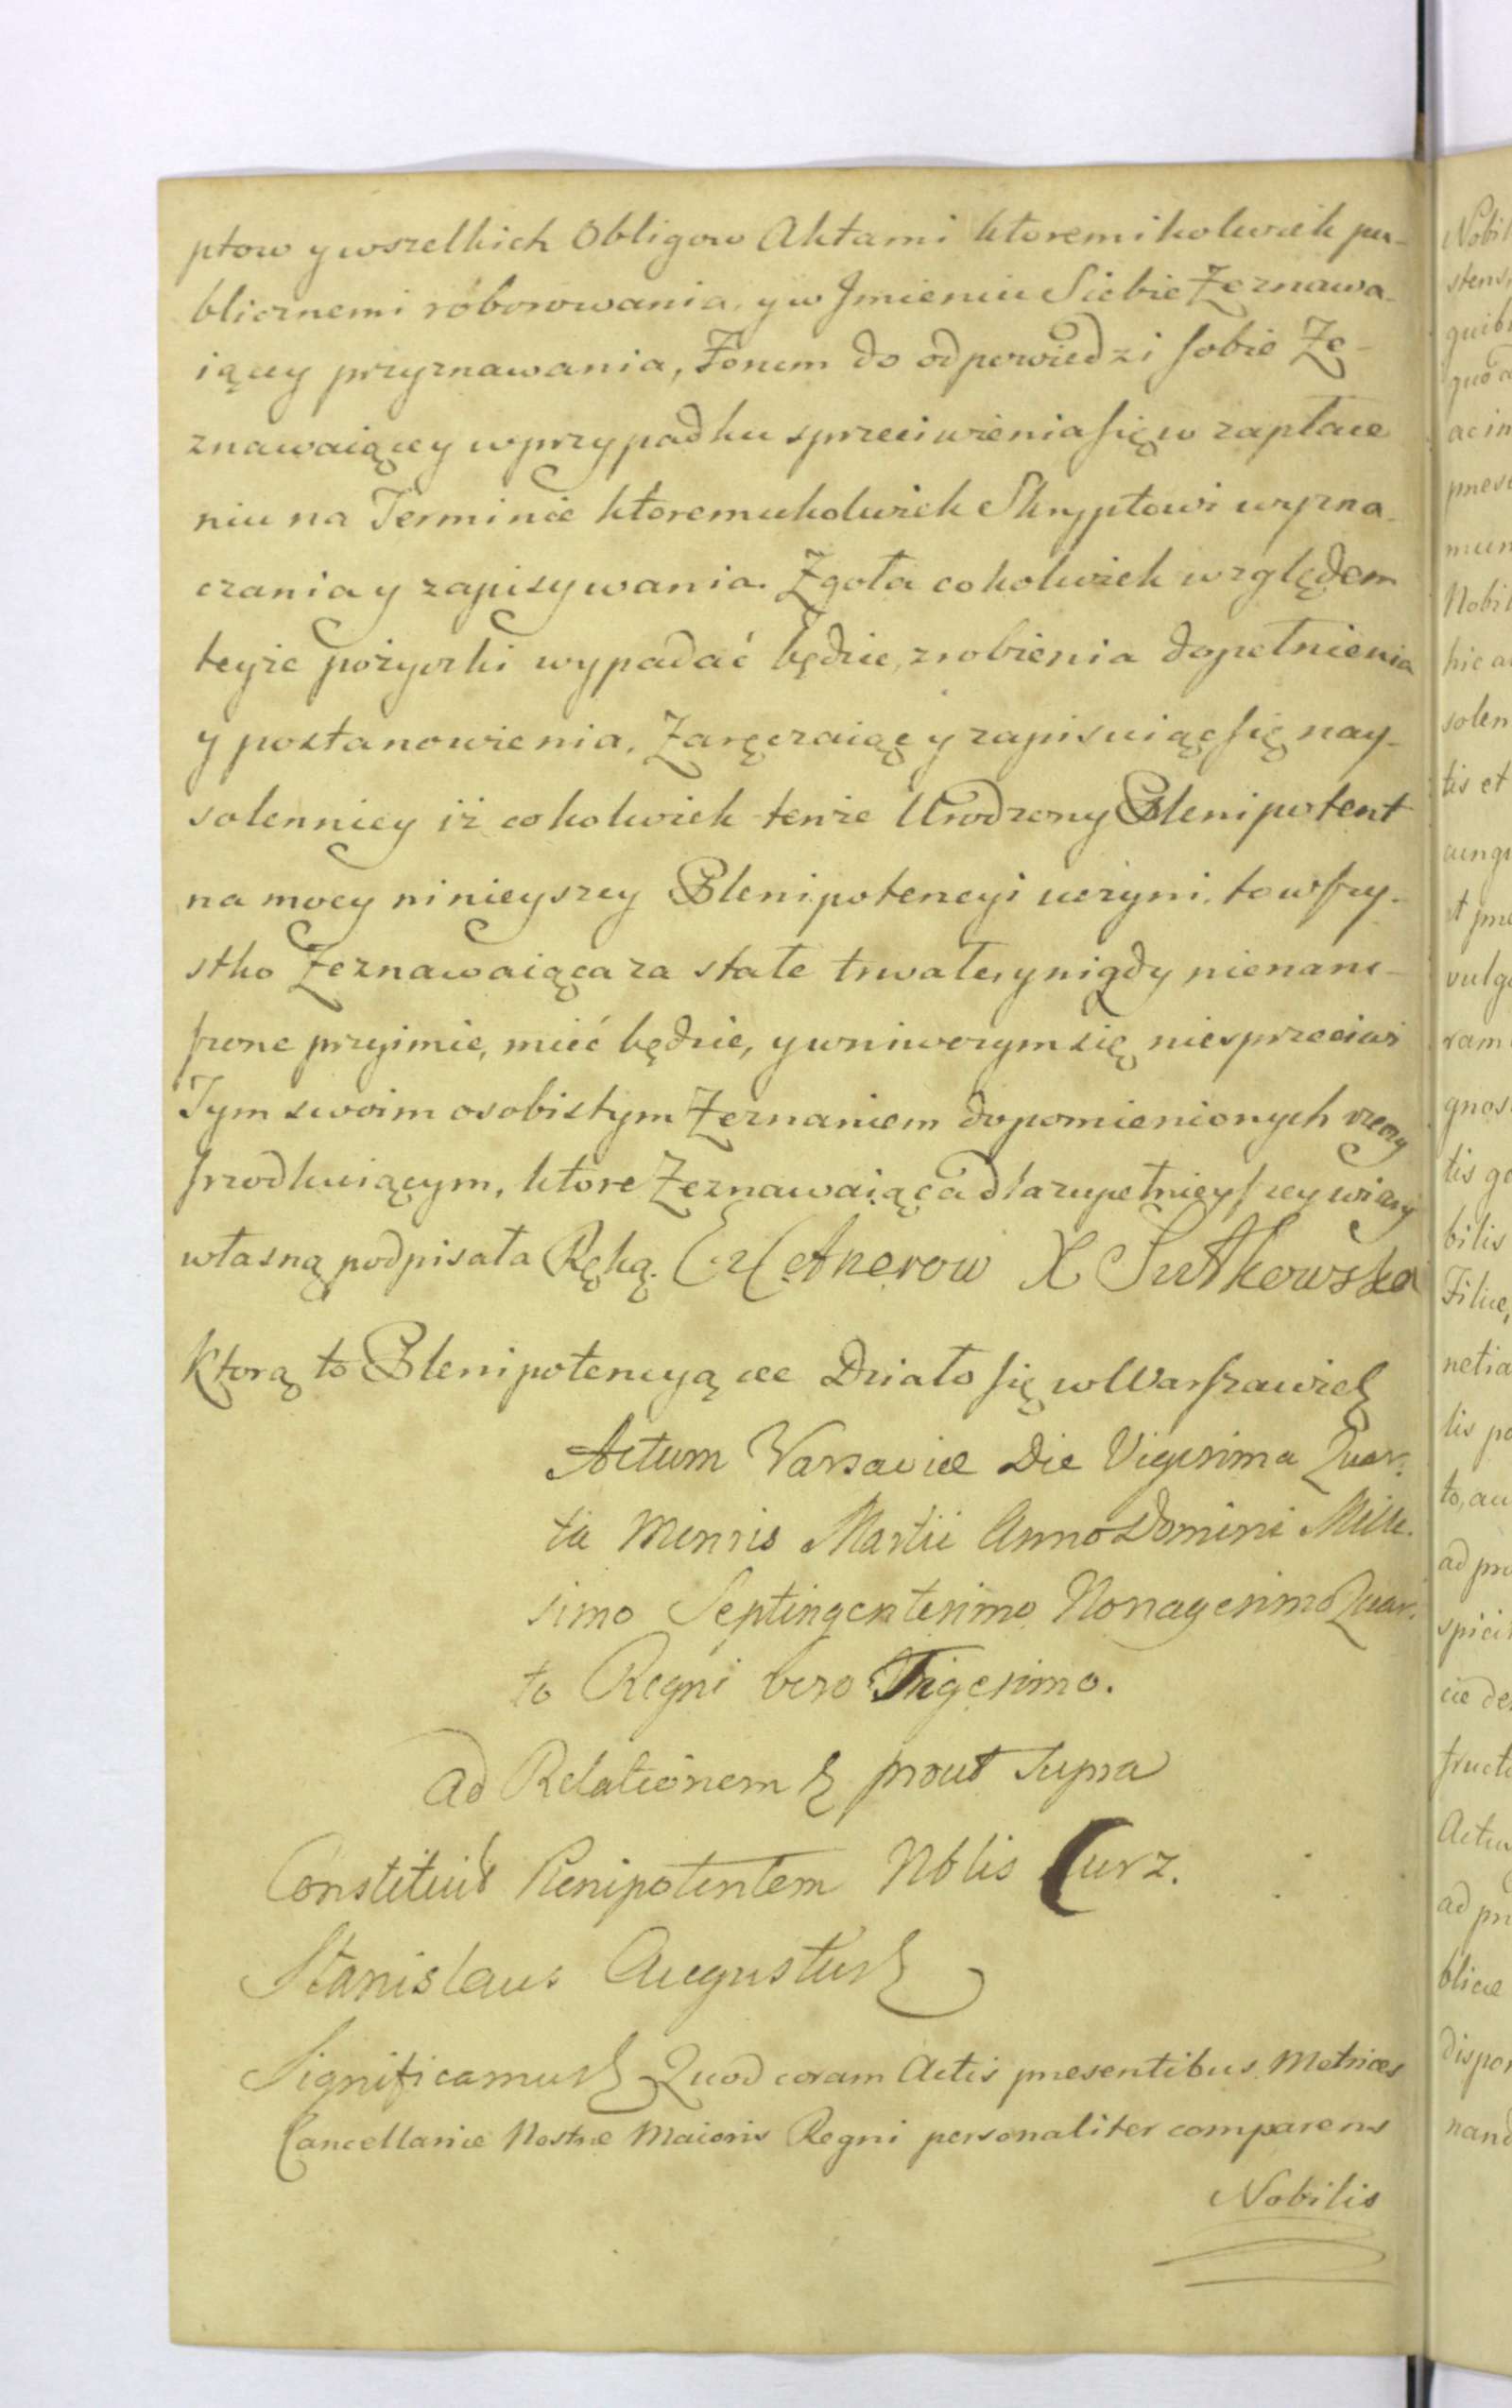 ptow y wszelkich Obligow Aktami ktoremikolwiek pu-
blicznemi roborowania, y w Jmieniu Siebie Zeznawa-
iącey przyznawania, Forum do odpowiedzi sobie Ze-
znawaiącey w przypadku sprzeciwienia się w zapłace
niu na Terminie ktoremukolwiek Skryptowi wyzna-
czania y zapisywania. Zgoła cokolwiek względem
teyże pożyczki wypadać będzie, zrobienia dopełnienia
y postanowienia, Zaręczaiąc y zapisuiąc się nay-
solenniey iż cokolwiek tenże Urodzony Plenipotent
na mocy ninieyszey Plenipotencyi uczyni, to wszy-
stko Zeznawaiąca za stałe trwałe, y nigdy nienaru-
szone przyimie, mieć będzie, y w niwczym się nie sprzeciwi
Tym swoim osobistym Zeznaniem do pomienionych rzeczy
srzodkuiącym, ktore Zeznawaiąca dla zupełnieyszey wiary
własną podpisała Ręką. Z Cetnerow X Sułkowska
Którą to Plenipotencyą &c Działo się w Warszawie &
Actum Varsaviæ Die Vigesima Quar-
ta Mensis Martii Anno Domini Mille-
simo Septingentesimo Nonagesimo Quar-
to Regni vero Trigesimo.
Ad Relationem & prout supra
Constituit Plenipotentem Nblis Kurz.
Stanislaus Augustus &
Significamus & Quod coram Actis præsentibus Metrices
Cancellariæ Nostræ Maioris Regni personaliter comparens
Nobilis
Nobil
stens,
quib
quo a
ac in
præs
mun
Nobil
hic a
solen
tis et
cunq
et præ
vulg
ram
gnos
tis ge
bilis
Filiæ,
netia
lis po
to, au
ad pro
spici
ciæ de
fructu
Actu
ad pr
blicæ
dispo
nand